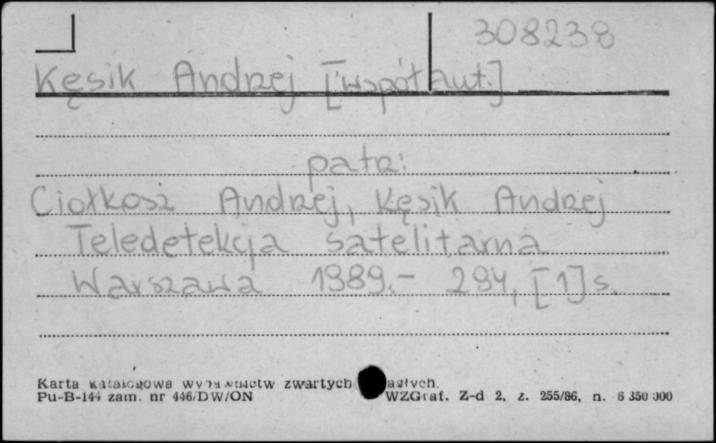 308238
Kęsik Andrzej [współaut.]
patrz:
Ciołkosz Andrzej, Kęsik Andrzej
Teledetekcja satelitarna
Warszawa 1989.- 294, [1] s.
Karta katalogowa wydawnictw zwartych
Pu-B-144 zam. nr 446/DW/ON WZGraf. Z-d 2, z. 255/86, n. 6 350 000